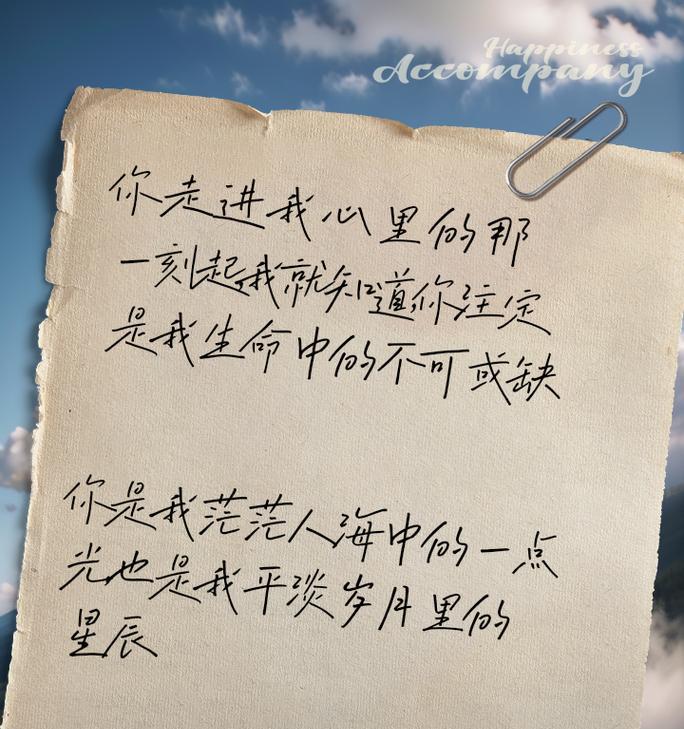 Happiness
Accompany
你走进我心里的那
一刻起,我就知道,你注定
是我生命中的不可或缺
你是我茫茫人海中的一点
光也是我平淡岁月里的
星辰